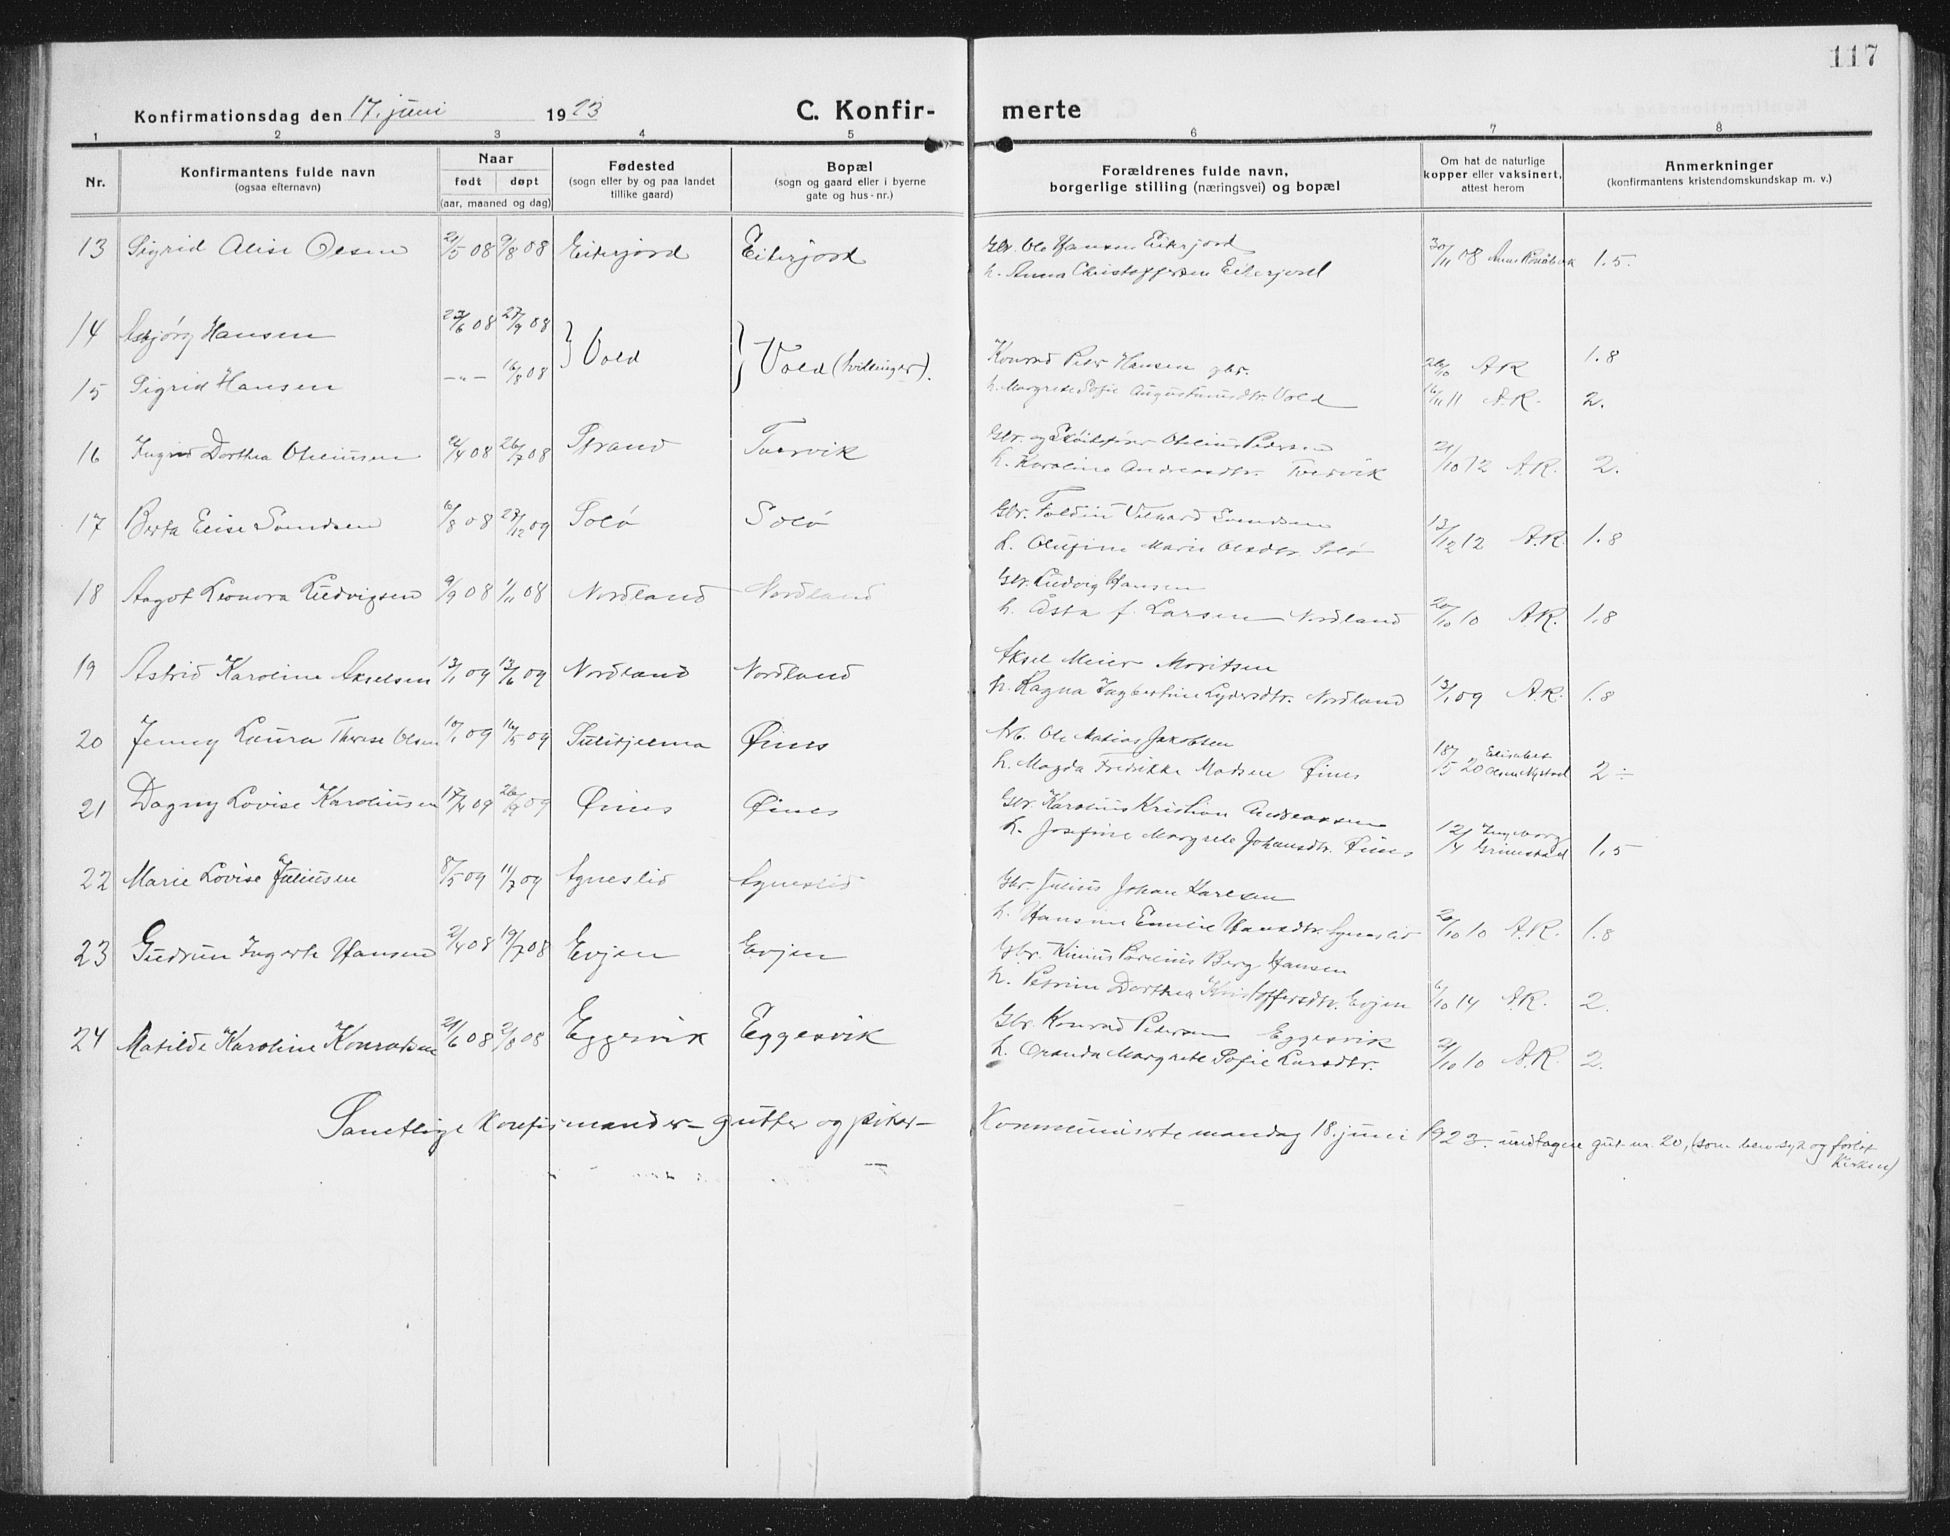 117
Konfirmationsdag den 17. juni 1923
C. Konfir- merte
1 2 3 4 5 6 7 8
Nr.
Konfirmantens fulde navn
(ogsaa efternavn)
Naar
født døpt
(aar, maaned og dag)
Fødested
(sogn eller by og paa landet
tillike gaard)
Bopæl
(sogn og gaard eller i byerne
gate og hus-nr.)
Forældrenes fulde navn,
borgerlige stilling (næringsvei) og bopæl
Om hat de naturlige
kopper eller vaksinert,
attest herom
Anmerkninger
(konfirmantens kristendomskundskap m. v.)
13 Sigrid Alise Olsen 21/5 08 9/8 08 Eiterjord Eiterjord Gbr. Ole Hansen Eiterjord 30/11 08 1.5.
h. Anna Christoffersen Eiterjord
14 Asbjørg Hansen 23/6 08 27/9 08 Vold Vold (tvillinger). Konrad Peter Hansen gbr. 26/10 A.R. 1.8
15 Sigrid Hansen -"- 16/8 08 h. Margrete Sofie Augustinusdtr. Vold 16/11 11 A.R. 2.
16 Ingrid Dorthea Otheliusen 9/4 08 26/7 08 Strand Tvervik Gbr. og Othelius Pedersen
h. Karoline Andreasdtr. Tvervik 21/10 12 A.R. 2.
17 Berta Elise Svendsen 6/8 08 27/12 09 Solø Solø Gbr. Toldin Vilhard Svendsen
h. Olufine Marie Olsdtr. Solø 13/12 12 A.R. 1.8
18 Aagot Leonora Ludvigsen 9/9 08 1/11 08 Nordland Nordland Gbr. Ludvig Hansen
h. Åsta f. Larsen Nordland 20/10 10 A.R. 1.8
19 Astrid Karoline Akselsen 13/1 09 13/6 09 Nordland Nordland Aksel Meier Moritsen
h. Ragna Ingbertine Lydersdtr. Nordland 13/1 09 A.R. 1.8
20 Jenny Laura Therese Olsen 10/1 09 16/5 09 Sulitjelma Øines Arb. Ole Matias Jakobsen
h. Magda Fredrikke Madsen Øines 18/5 20 Elisabet Olsen Nystad 2 ÷
21 Dagny Lovise Karoliusen 17/4 09 09 Øines Øines Gbr. Karolius Kristian Andreassen
h. Josefine Margrete Johansdtr. Øines 12/4 Ingeborg Grimstad 1.5
22 Marie Lovise Juliusen 8/5 09 11/7 09 Agneslid Agneslid Gbr. Julius Johan Karlsen
h. Hansine Emilie Hansdtr. Agneslid 20/10 10 A.R. 1.8
23 Gudrun Ingerte Hansen 2/4 08 19/7 08 Evjen Evjen Gbr. Berg Hansen
h. Petrine Dorthea Kristoffersdtr. Evjen 6/10 14 A.R. 2.
24 Matilde Karoline Konradsen 21/6 08 2/8 08 Eggesvik Eggesvik Gbr. Konrad Pedersen Eggesvik
h. Oranda Margrete Sofie Larsdtr. 21/10 10 A.R. 2.
Samtlige konfirmander - gutter og piker - Kommuniserte mandag 18. juni 1923. undtagen gut nr. 20, (som blev syk og forlot
kirken)